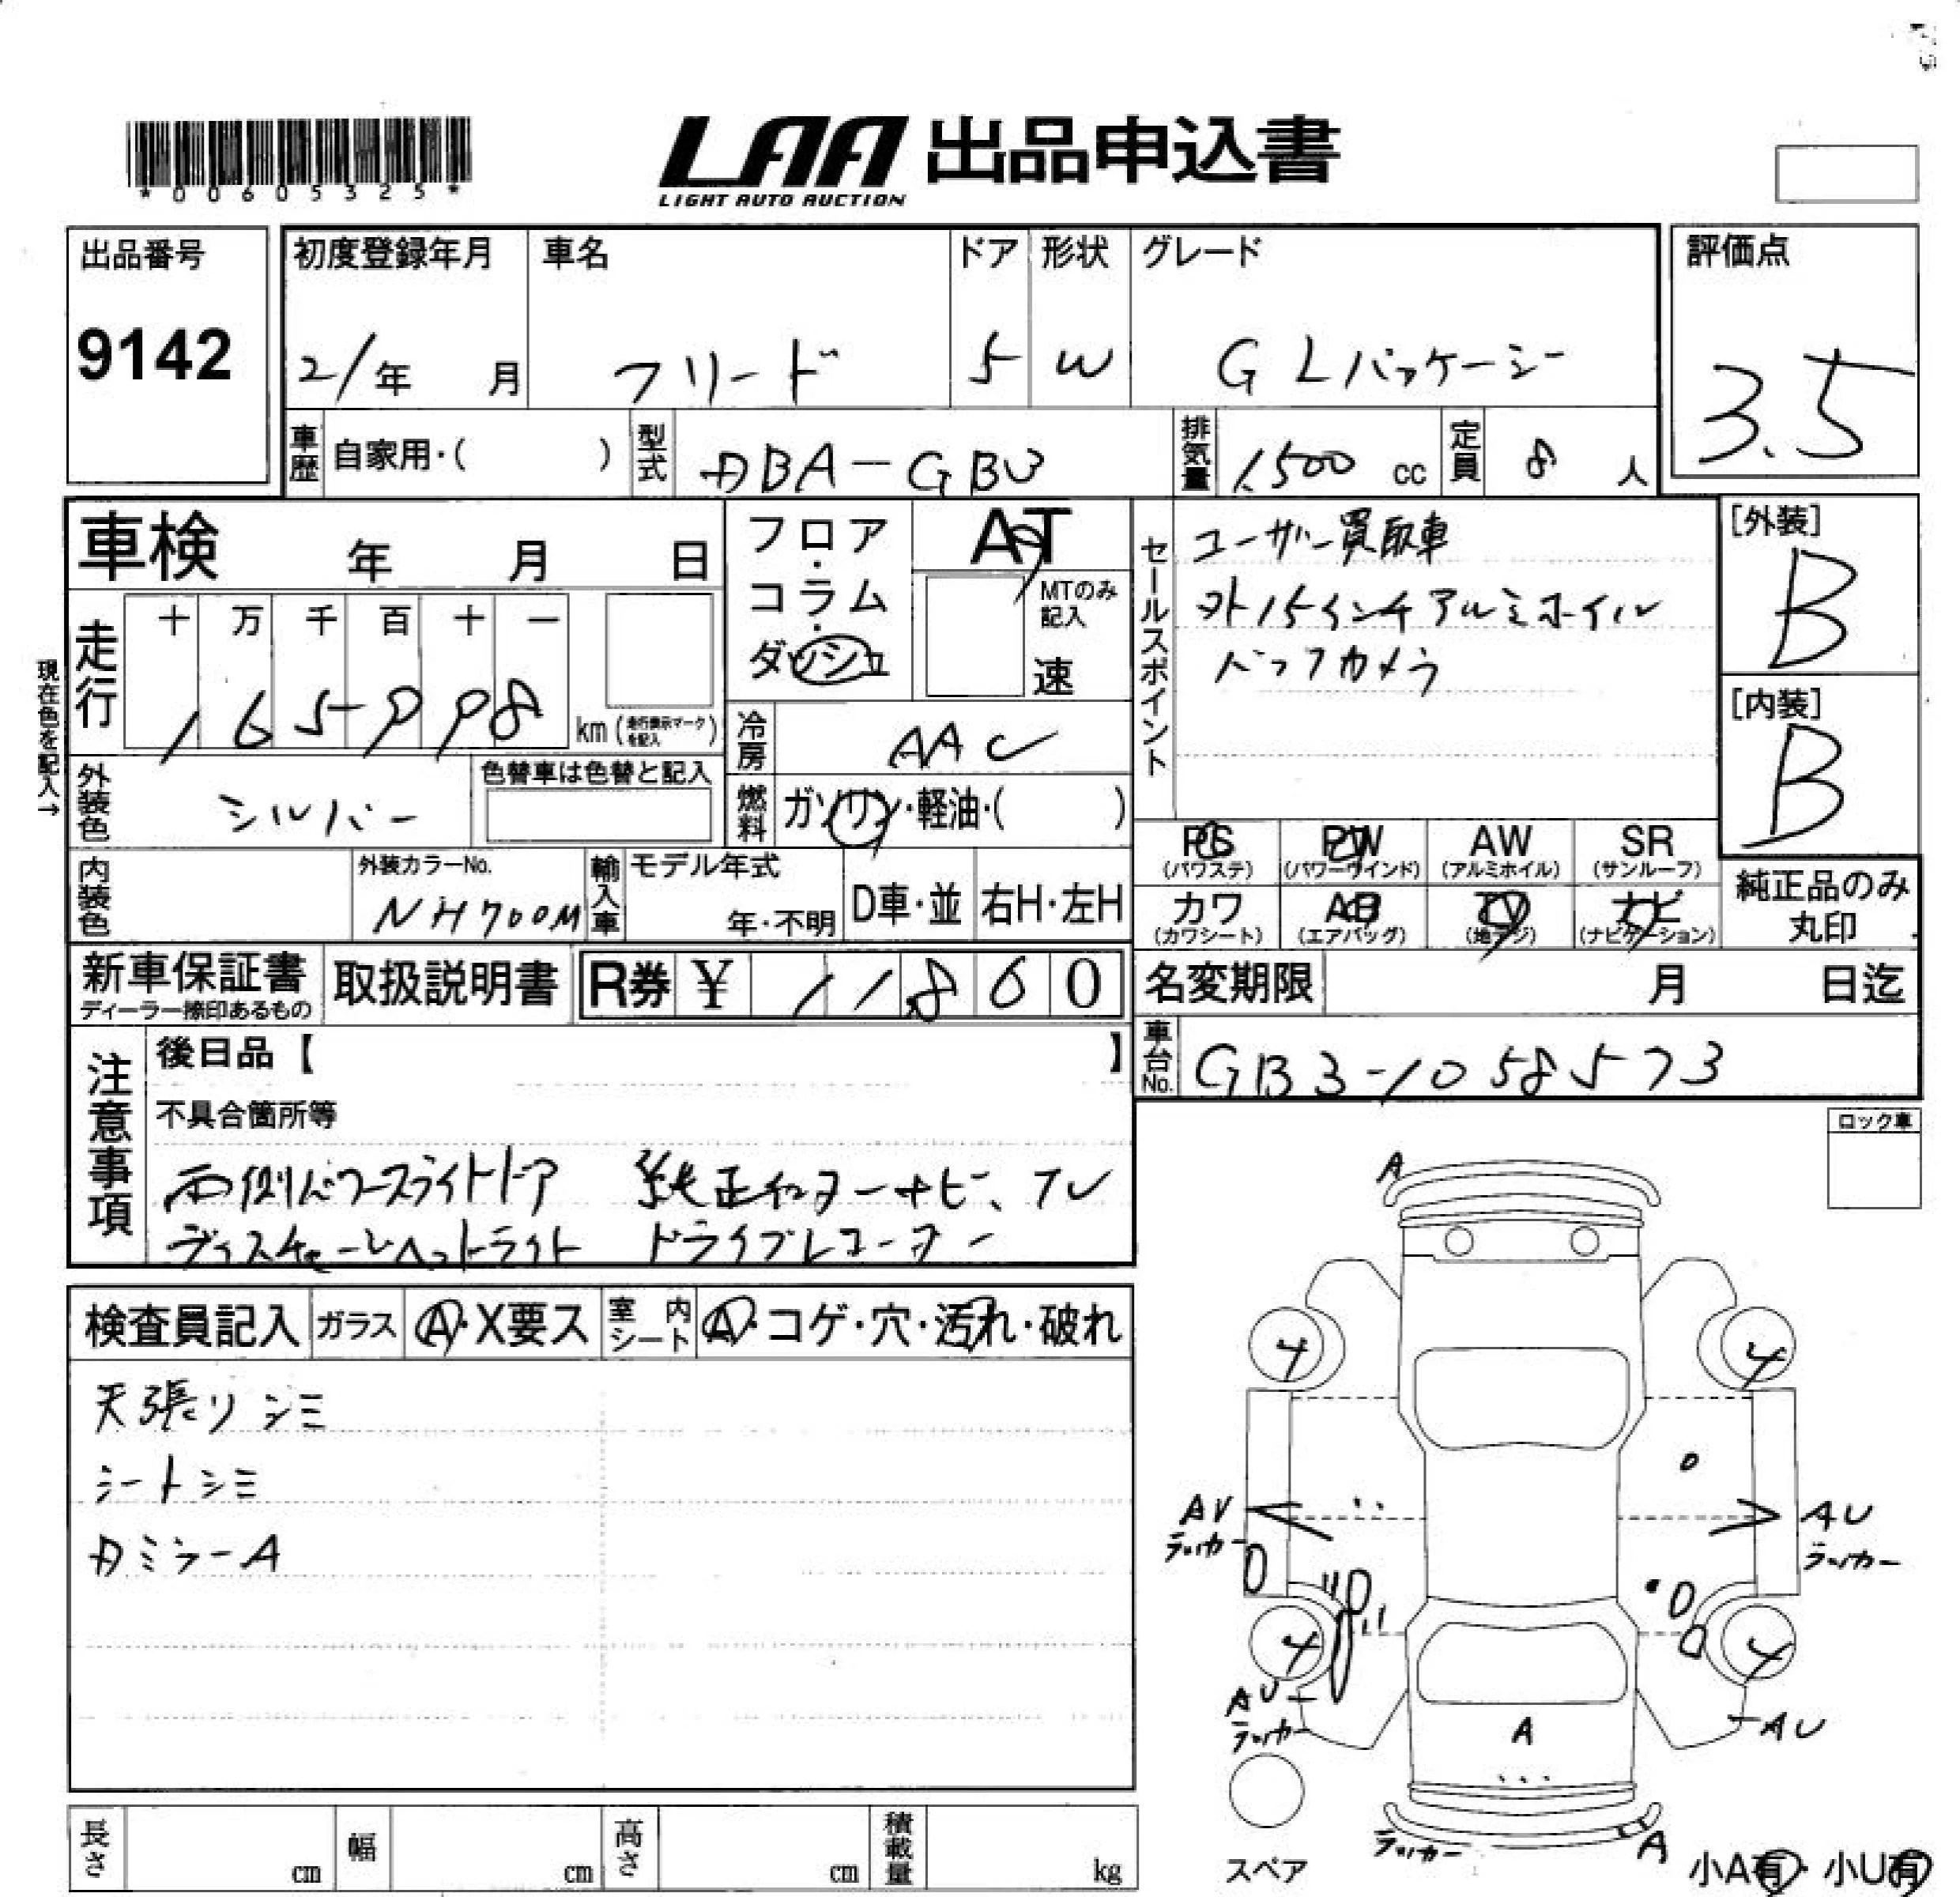 *00605325*
LAA 出品申込書
LIGHT AUTO AUCTION
出品番号
9142
初度登録年月 車名 ドア 形状 グレード
21年 月 フリード 5 W G Lパッケージ
評価点
3.5
車歴 自家用・( ) 型式 DBA-GB3 排気量 1,500 cc 定員 8 人
車検 年 月 日
フロア・コラム・ダッシュ
AT
MTのみ記入
速
走行 十 万 千 百 十 一
165998 km (走行表示マークを記入)
現在色を記入→
冷房 AAC
外装色 シルバー 色替車は色替と記入
燃料 ガソリン・軽油・( )
内装色 外装カラーNo. NH700M
輸入車 モデル年式 年・不明 D車・並 右H・左H
セールスポイント
ユーザー買取車
外15インチアルミホイル
バックカメラ
[外装]
B
[内装]
B
PS (パワステ) PW (パワーウインド) AW (アルミホイル) SR (サンルーフ)
カワ (カワシート) AB (エアバッグ) TV (地デジ) ナビ (ナビゲーション)
純正品のみ
丸印
新車保証書 ディーラー捺印あるもの 取扱説明書 R券 ¥ 11,860
名変期限 月 日迄
車台No. GB3-1058573
注意事項
後日品【 】
不具合箇所等
両側パワースライトドア 純正インターナビ、TV
ディスチャージヘットライト ドライブレコーダー
ロック車
検査員記入 ガラス A・X要ス 室内シート A・コゲ・穴・汚れ・破れ
天張リシミ
シートシミ
DミラーA
A
4 4
AU ラッカー
AU ラッカー
4 4
AU ラッカー
A
AU
スペア
ラッカー
A
小A有・小U有
長さ cm 幅 cm 高さ cm 積載量 kg